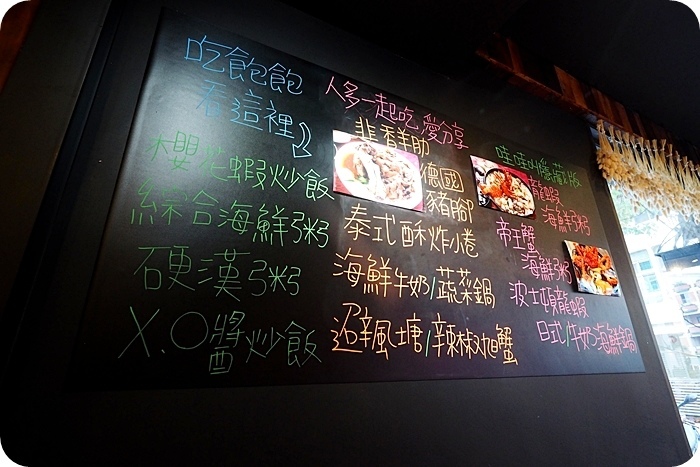 吃飽飽
看這裡
櫻花蝦炒飯
綜合海鮮粥
硬漢粥
X.O醬炒飯
人多一起吃,愛分享
韭香鮮蚵
德國
豬腳
泰式酥炸小卷
海鮮牛奶/蔬菜鍋
避風塘/辣椒炒旭蟹
哇哇叫隱藏版
龍蝦
海鮮粥
帝王蟹
海鮮粥
波士頓龍蝦
日式/牛奶海鮮鍋